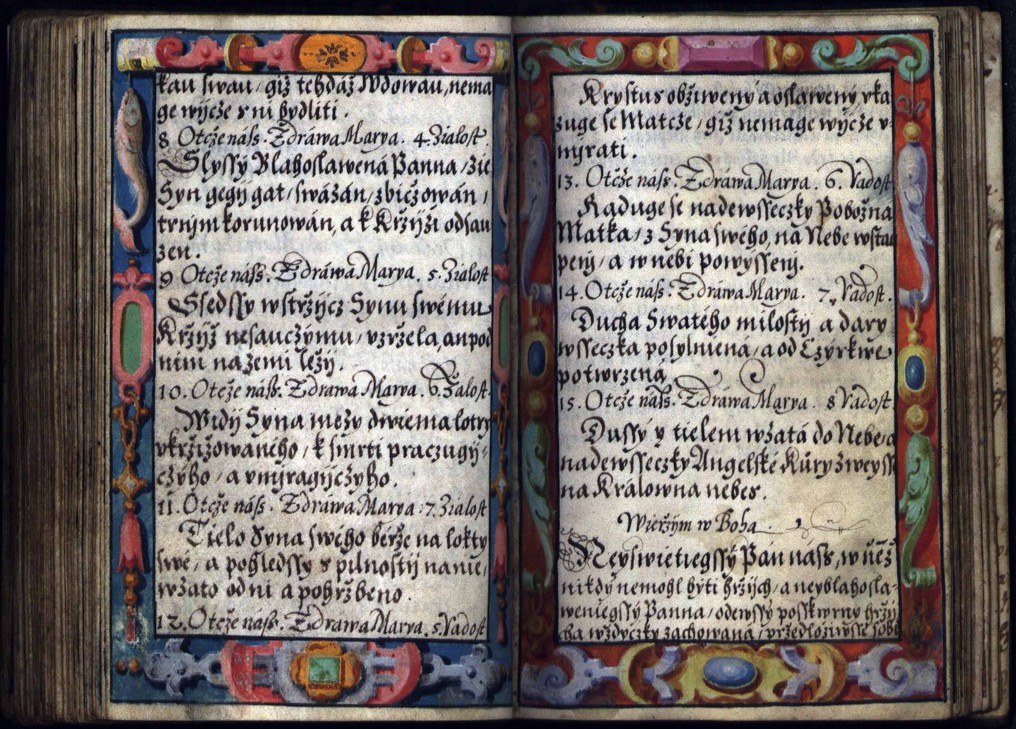 kau swau / giž tehdáž Wdowau, nema
ge wijcže s ni bydliti.
8 Otcže náss. Zdráwa Marya. 4. Žialost.
Slyssý Blahoslawená Panna / že
Syn gegij gat / swázán / zbičzowán /
trnijm korunowán, a k Kržijži odsau
zen.
9 Otcže náss. Zdráwa Marya. 5. Žialost
Ssedssy wstržijcz Synu swému
Kržijž nesauczýmu / vzržela, an pod
nim na zemi ležij.
10. Otcže náss. Zdrawa Marya. 6. Žalost.
Widij Syna mezy dwiema lotry
vkržižowaného / k smrti praczugij-
czýho / a vmijragijczýho.
11. Otcže náss. Zdráwa Marya. 7. Žialost
Tielo Syna swého bérže na lokty
swé / a pohledssy s pilnostij na nie /
wzato od ni a pohržbeno.
12. Otcže náss. Zdrawa Marya. 5 Radost
Krystus obžiwený a oslawený vka
zuge se Matcže / giž nemage wijcže v-
mijrati.
13. Otcže náss. Zdráwa Marya. 6. Radost
Raduge se nadewsseczky Pobožna
Matka / z Syna swého, na Nebe wstau
pený / a w nebi powýssený.
14. Otcže náss. Zdráwa Marya. 7. Radost.
Ducha Swatého milostij a dary
wsseczka posylniená / a od Czýrkwe
potwrzená
15. Otcže náss. Zdrawa Marya. 8 Radost
Dussý y tielem wzatá do Nebe a
nadewsseczky Angelské Kůry zweyss
na Králowna nebes.
Wieržým w Boha.
Neyswietiegssý Pan náss, w němž
nikdý nemohl býti hržijch, a neyblahosla-
weniegssý Panna / odewssý posskwrny hržij
cha wždyczky zachowaná / przedložiwsse sobě